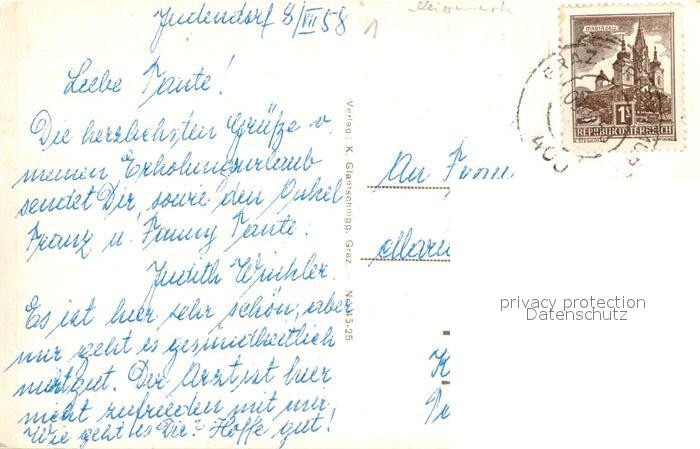 Judendorf 8/VII 58
1
Steiermark
Liebe Tante!
Die herzlichsten Grüße v.
meinen Erholungsurlaub
sendet Dir, sowie den Onkel
Franz u. Fanny Tante:
Judith Winkler.
Es ist hier sehr schön, aber
mir geht es gesundheitlich
nicht gut. Der Arzt ist hier
nicht zufrieden mit mir.
Wie geht es Dir? Hoffe gut!
Verlag: K. Glantschnigg, Graz
An Frau
Maria
K
MARIAZELL
1S
REPUBLIK ÖSTERREICH
GRAZ
privacy protection
Datenschutz